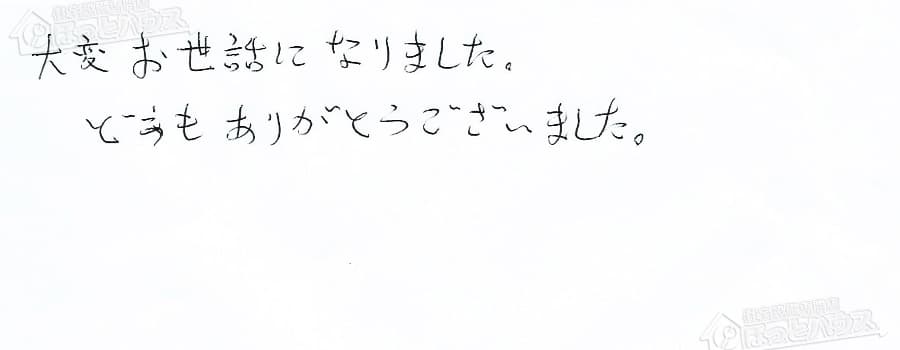 大変お世話になりました。
どうもありがとうございました。
ほっとハウス
ほっとハウス